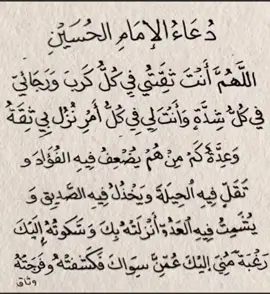 دُعَاءُ الإِمَامِ الحُسَيْنِ
اللَّهُمَّ أَنْتَ ثِقَتِي فِي كُلِّ كَرْبٍ وَرَجَائِي
فِي كُلِّ شِدَّةٍ وَأَنْتَ لِي فِي كُلِّ أَمْرٍ نُزِّلَ بِي ثِقَةٌ
وَعِدَّةٌ كَمْ مِنْ هُمْ يَضْعُفُ فِيهِ الفُؤَادُ وَ
تَقِلُّ فِيهِ الحِيلَةُ وَيَخْذُلُ فِيهِ الصَّدِيقُ وَ
يُشْمِتُ فِيهِ العَدُوُّ أَنْزَلْتُهُ بِكَ وَشَكَوْتُهُ إِلَيْكَ
رَغْبَةً مِنِّي إِلَيْكَ عَمَّنْ سِوَاكَ فَكَشَفْتَهُ وَفَرَّجْتَهُ
وثاق